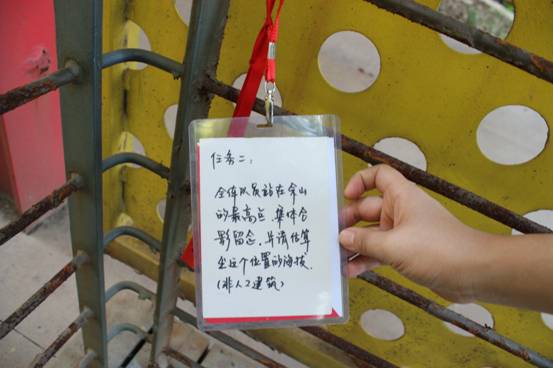 任务二：
全体队员站在佘山
的最高点，集体合
影留念，并请估算
出这个位置的海拔.
(非人工建筑)